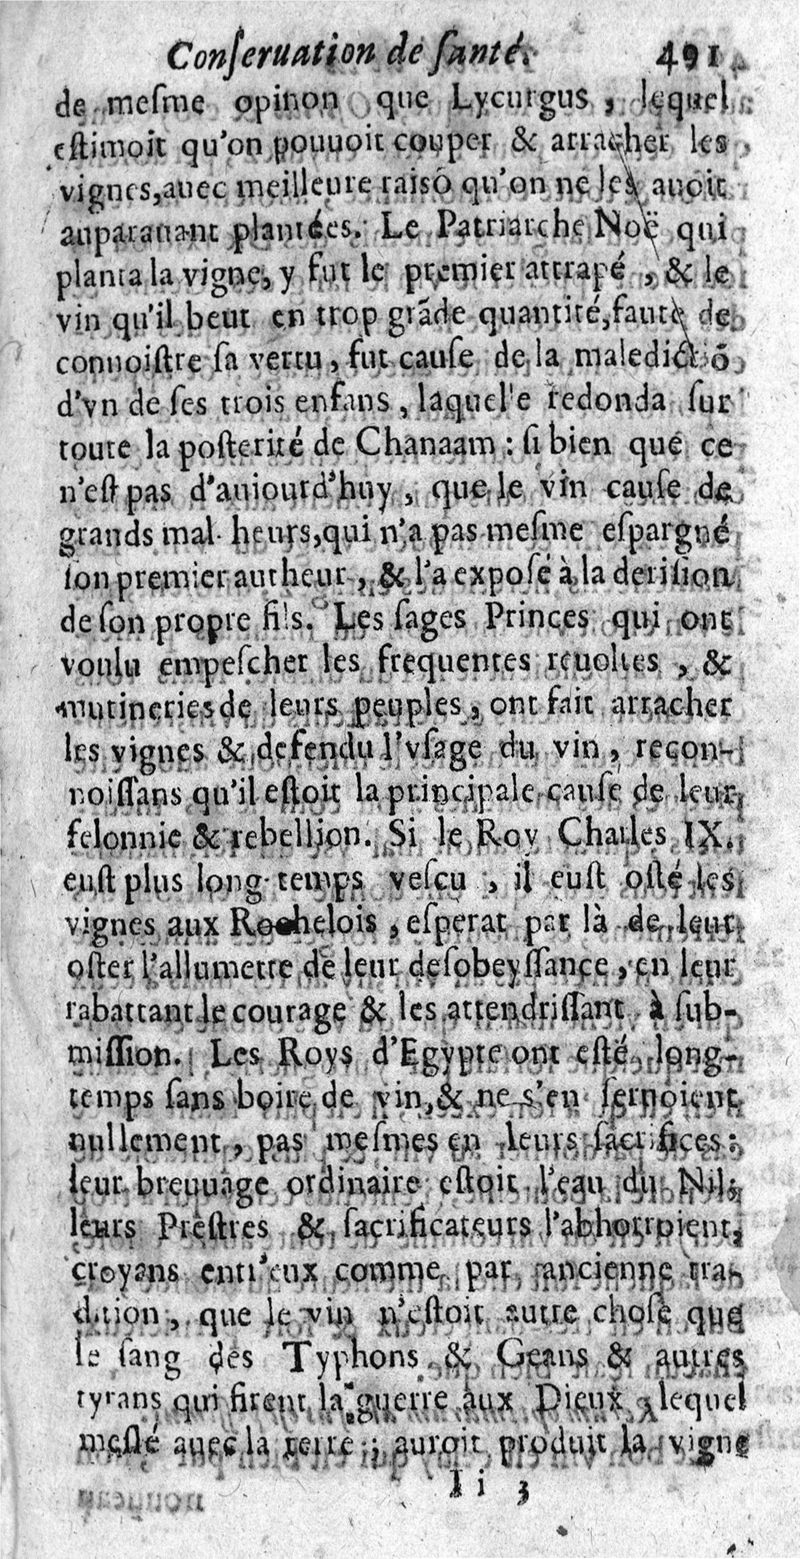 Conſeruation de ſanté. 491
de meſme opinon que Lycurgus, lequel
eſtimoit qu'on pouuoit couper & arracher les
vignes, auec meilleure raisõ qu'on ne les auoit
auparauant plantées. Le Patriarche Noë qui
planta la vigne, y fut le premier attrapé, & le
vin qu'il beut en trop grãde quantité, faute de
connoiſtre ſa vertu, fut cauſe de la maledictiõ
d'vn de ſes trois enfans, laquel'e redonda ſur
toute la poſterité de Chanaam : ſi bien que ce
n'eſt pas d'auiourd'huy, que le vin cauſe de
grands mal-heurs, qui n'a pas meſme eſpargné
ſon premier autheur, & l'a expoſé à la deriſion
de ſon propre fils. Les ſages Princes qui ont
voulu empeſcher les frequentes reuoltes, &
mutineries de leurs peuples, ont fait arracher
les vignes & defendu l'vſage du vin, recon-
noiſſans qu'il eſtoit la principale cauſe de leur
felonnie & rebellion. Si le Roy Charles IX.
euſt plus long-temps veſcu, il euſt oſté les
vignes aux Rochelois, eſperāt par là de leur
oſter l'allumette de leur deſobeyſſance, en leur
rabattant le courage & les attendriſſant à ſub-
miſſion. Les Roys d'Egypte ont eſté long-
temps ſans boire de vin, & ne s'en ſeruoient
nullement, pas meſmes en leurs ſacrifices :
leur breuuage ordinaire eſtoit l'eau du Nil;
leurs Preſtres & ſacrificateurs l'abhorroient,
croyans entr'eux comme par ancienne tra-
dition, que le vin n'eſtoit autre choſe que
le ſang des Typhons & Geans & autres
tyrans qui firent la guerre aux Dieux, lequel
meſlé auec la terre ; auroit produit la vigne
Ii 3